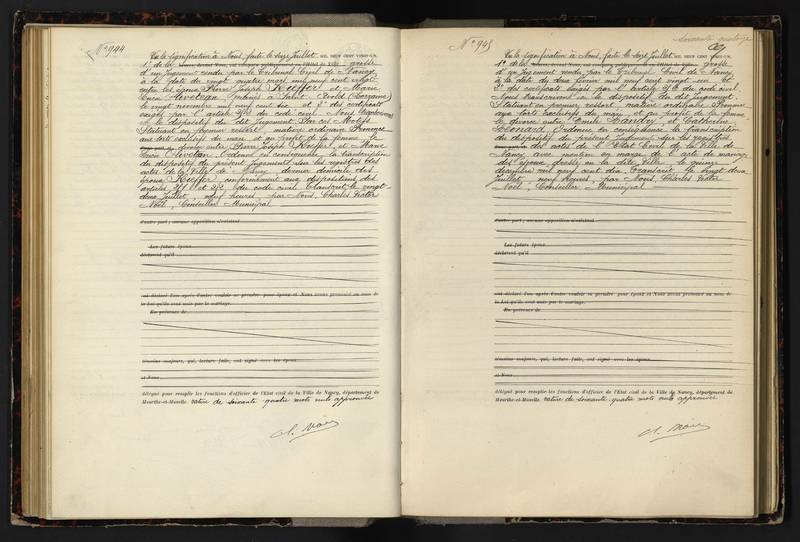 N° 944
Vu la signification à Nous, faite le seize Juillet MIL NEUF CENT VINGT-UN.
1° de la grosse
d'un jugement rendu par le Tribunal Civil de Nancy
à la date du vingt quatre mars mil neuf cent vingt
entre les époux Pierre Joseph Kieffer et Marie
à Saint Avold (Lorraine)
le vingt novembre mil neuf cent six et 2° des certificats
exigés par l'article 252 du code civil Nous transcrivons
ici le dispositif du dit jugement Par ces Motifs
Statuant en premier ressort matière ordinaire Prononce
aux torts exclusifs du mari et au profit de la femme le
divorce entre Pierre Joseph Kieffer et Marie
Ordonne en conséquence la transcription
du dispositif du présent jugement sur les registres des
actes de la Ville de Nancy, dernier domicile des
époux Kieffer conformément aux dispositions des
articles 251 et 252 du code civil. Transcrit le vingt
deux Juillet neuf heures, par Nous, Charles Victor
Noël Conseiller Municipal
d'autre part ; aucune opposition n'existant.
Les futurs époux
déclarent qu'il
ont déclaré l'un après l'autre vouloir se prendre pour époux et Nous avons prononcé au nom de
la Loi qu'ils sont unis par le mariage.
En présence de
témoins majeurs, qui, lecture faite, ont signé avec les époux
et Nous
délégué pour remplir les fonctions d'officier de l'Etat civil de la Ville de Nancy, département de
Meurthe-et-Moselle. rature de soixante quatre mots nuls approuvée
Ch. Noël
N° 945
Vu la signification à Nous, faite le seize Juillet MIL NEUF CENT VINGT-UN.
1° de la grosse
d'un jugement rendu par le Tribunal Civil de Nancy
à la date du deux février mil neuf cent vingt un et
2° des certificats exigés par l'article 252 du code civil
Nous transcrivons ici le dispositif du dit jugement
Statuant en premier ressort matière ordinaire Prononce
aux torts exclusifs du mari et au profit de la femme
le divorce entre Emile et Catherine
Léonard Ordonne en conséquence la transcription
du dispositif du présent jugement sur les registres
des actes de l'Etat Civil de la Ville de
Nancy avec mention en marge de l'acte de mariage
des époux dressé en la dite Ville le quinze
décembre mil neuf cent dix. Transcrit le vingt deux
Juillet neuf heures, par Nous, Charles Victor
Noël, Conseiller Municipal
d'autre part ; aucune opposition n'existant.
Les futurs époux
déclarent qu'il
ont déclaré l'un après l'autre vouloir se prendre pour époux et Nous avons prononcé au nom de
la Loi qu'ils sont unis par le mariage.
En présence de
témoins majeurs, qui, lecture faite, ont signé avec les époux
et Nous
délégué pour remplir les fonctions d'officier de l'Etat civil de la Ville de Nancy, département de
Meurthe-et-Moselle. rature de soixante quatre mots nuls approuvée
Ch. Noël